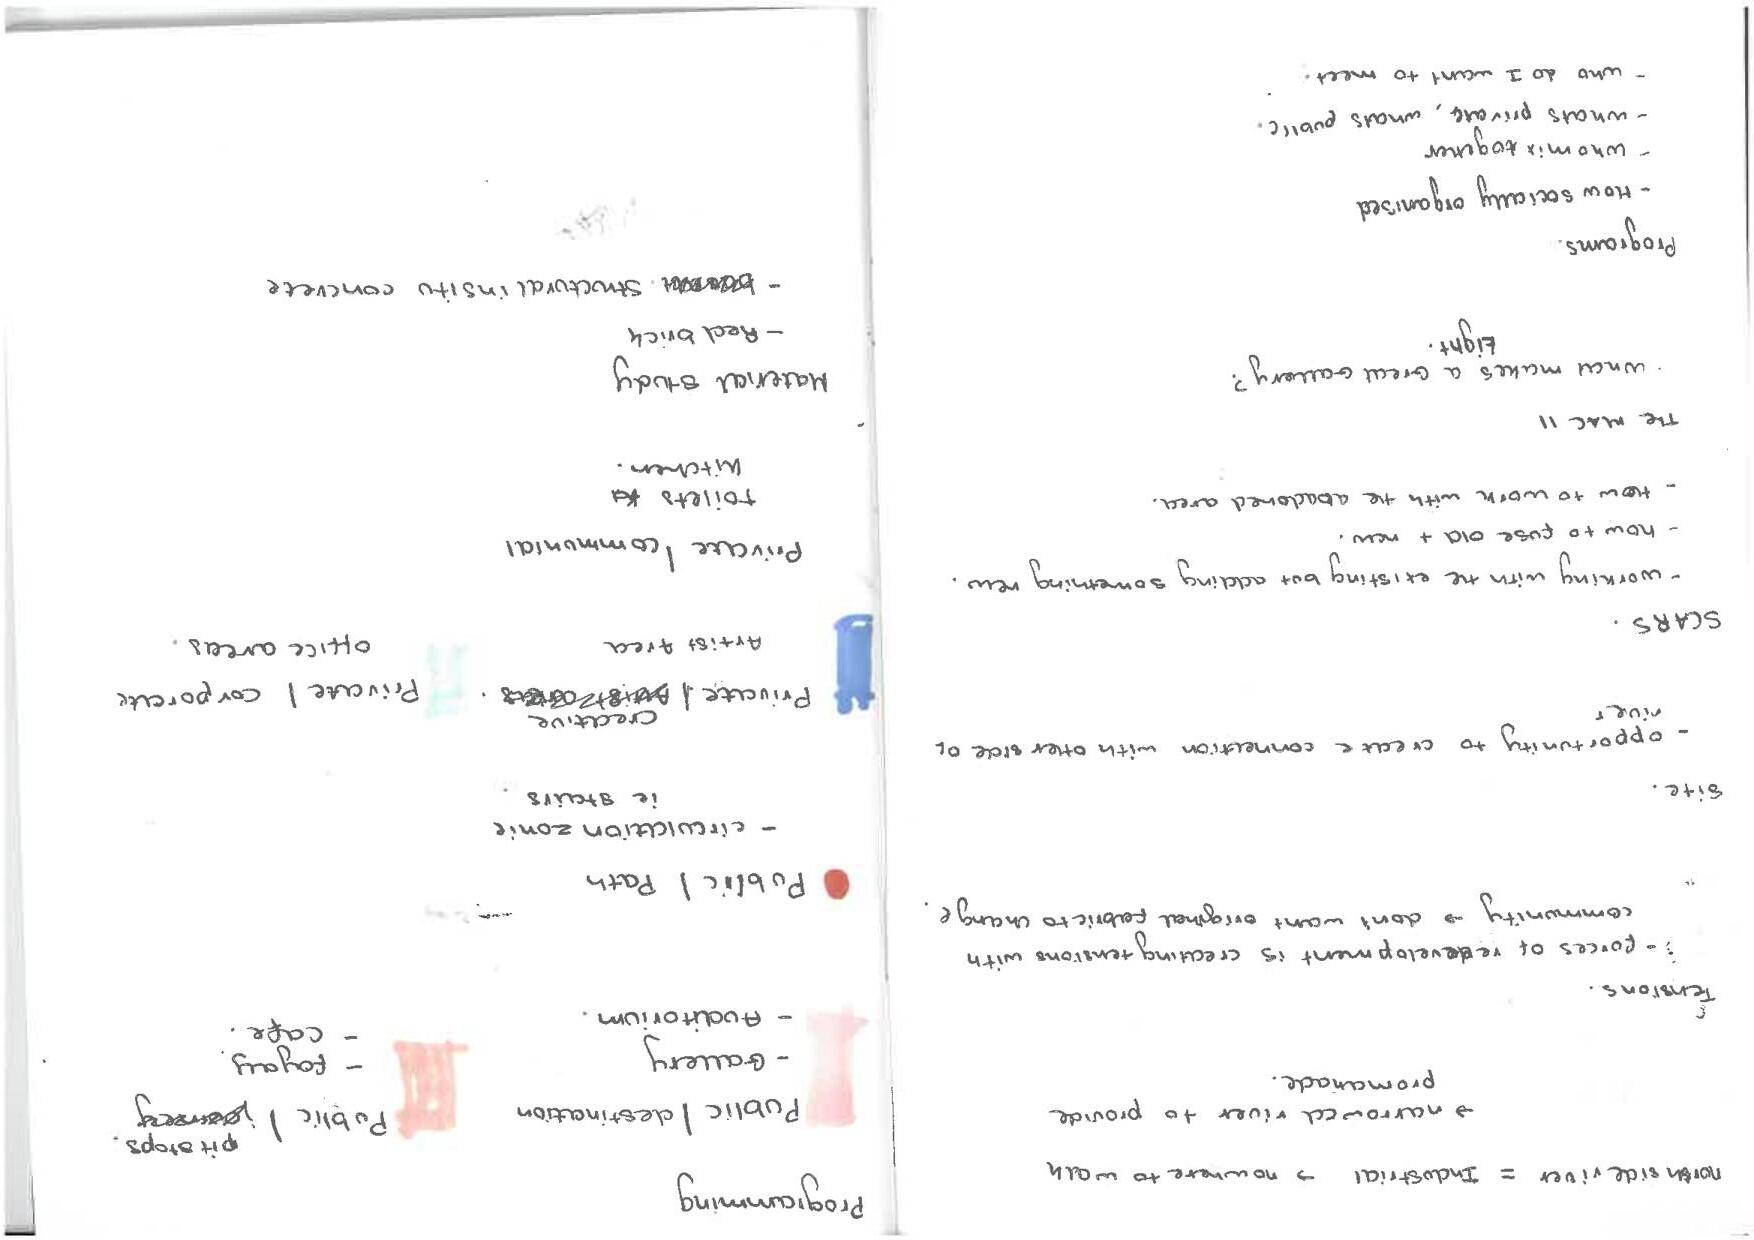 north side river = Industrial → nowhere to walk
→ narrowed river to provide
promanade.
Tensions.
- forces of redevelopment is creating tensions with
community → don't want original fabric to change.
Site.
- opportunity to create connection with other side of
river
SCARS.
- working with the existing but adding something new.
- how to fuse old + new.
- How to work with the abadoned area.
The MAC 11
. What makes a Great Gallery?
Light.
Programs.
- How socially organised
- who mix together
- whats private, whats public.
- who do I want to meet.
Programming
Public / destination
- Gallery
- Auditorium.
pit stops.
Public /
- foyay
- cafe.
Public / Path
- circulation zonie
ie stairs.
creative
Private /
Artist Area
Private / corporate
office areas.
Private / communial
toilets
kitchen.
Material Study
- Red brick
- structural insitu concrete